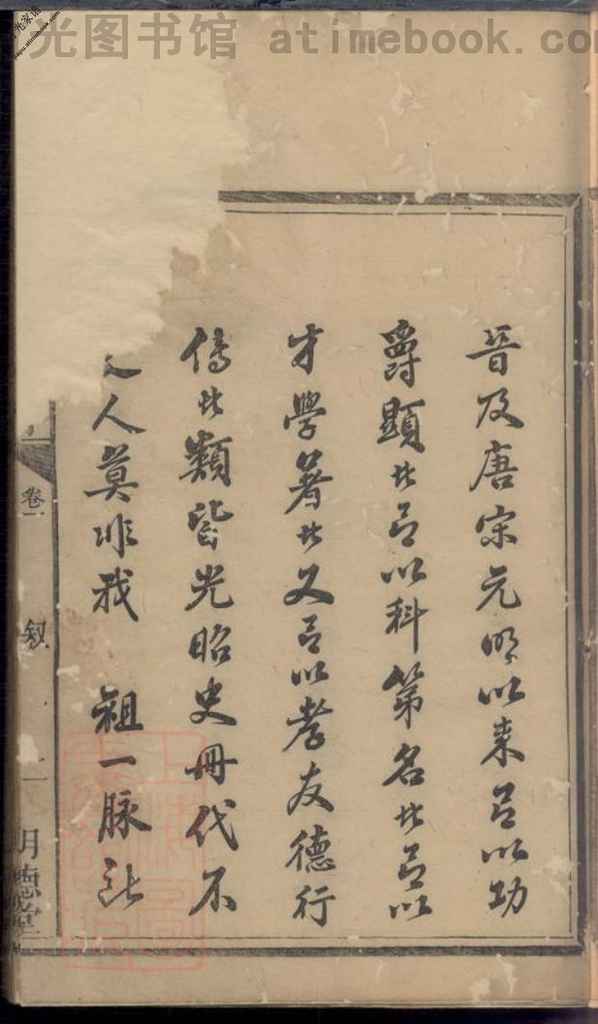 光图书馆 atimebook.co
晉及唐宋元明以来有以功
爵顯者有以科第名者有以
才學著者又有以孝友德行
傳者類皆光昭史冊代不
人莫非我 祖一脉
卷
敘
一
明德堂